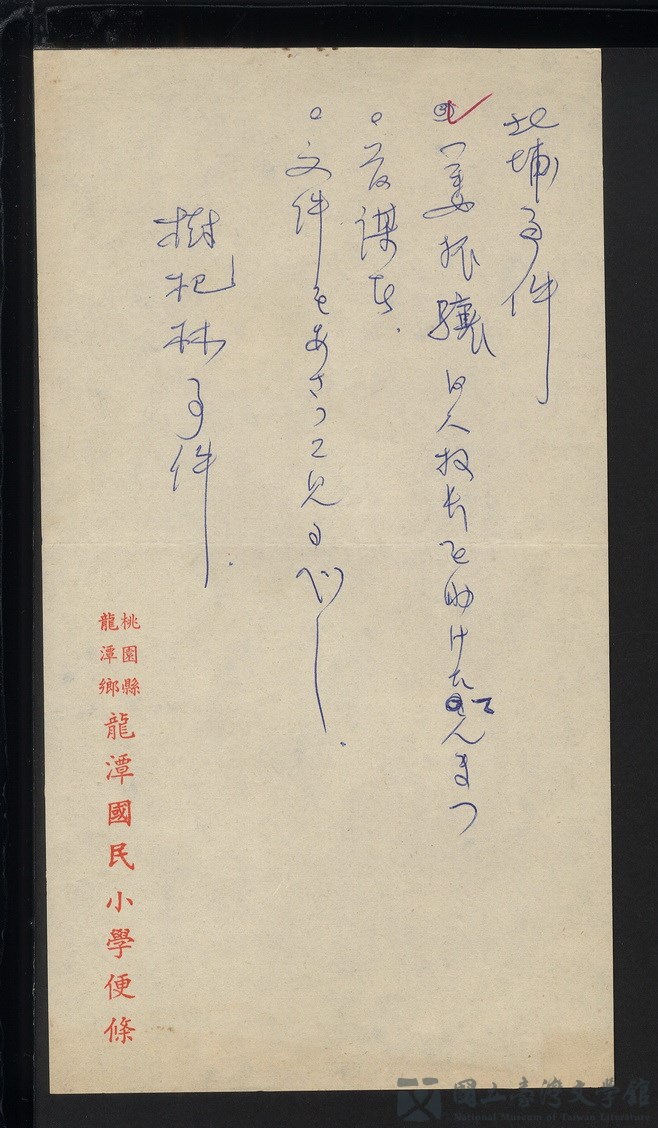 北埔事件
姜振驤日人校長を助けたてんまつ
首謀者.
文件をあさって見る可し.
樹杞林事件.
桃園縣
龍潭鄉
龍潭國民小學便條
國立臺灣文學館
National Museum of Taiwan Literature